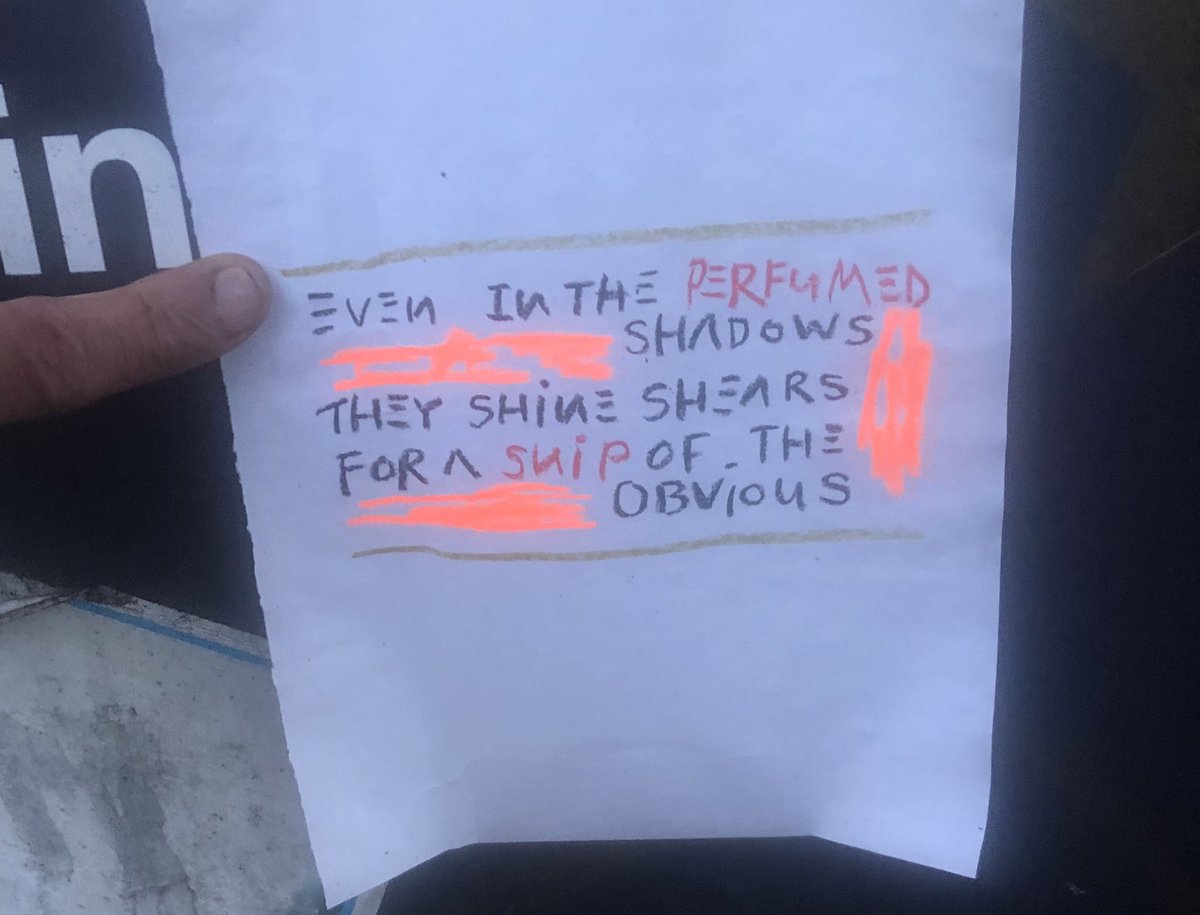 in
EVEN IN THE PERFUMED
SHADOWS
THEY SHINE SHEARS
FOR A SNIP OF THE
OBVIOUS